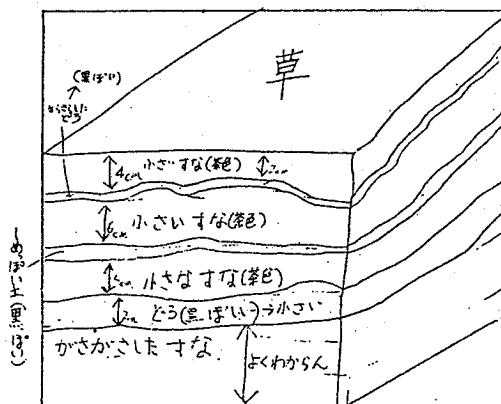 草
(黒ぽい)
さらさらした
どろ
4cm 小さいすな(茶色)
2cm
6cm 小さいすな(茶色)
小さなすな(茶色)
どろ(黒っぽい)→小さい
がさがさしたすな
よくわからん
しめっぽい土(黒ぽい)